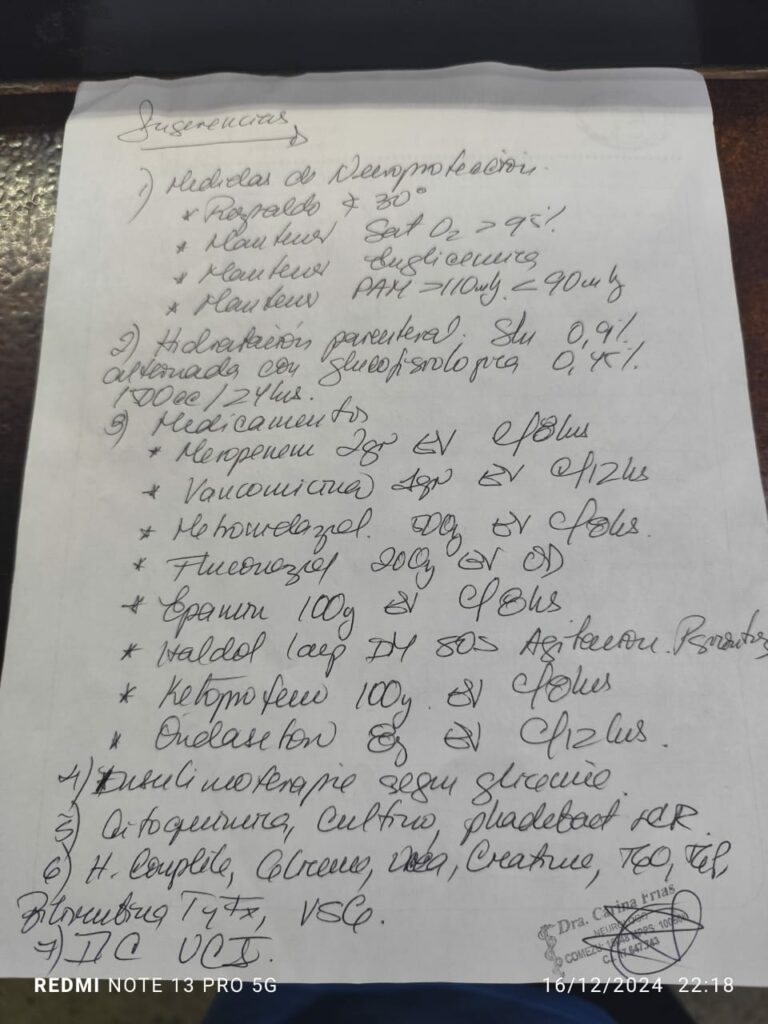 Sugerencias
1) Medidas de Neuroprotección.
* Respaldo 30°
* Mantener Sat O2 > 95%
* Mantener Euglicemia
* Mantener PAM >110 < 90
2) Hidratación parenteral. Sln 0,9%
alternada con glucofisiologica 0,45%
1500cc/24hs.
3) Medicamentos
* Meropenem 2gr EV c/8hs
* Vancomicina 1gr EV c/12hs
* Metronidazol. 500g EV c/8hs.
* Fluconazol 200g EV OD
* Epamin 100g EV c/8hs
* Haldol IM SOS Agitacion.
* Ketoprofeno 100g EV c/8hs
* Ondaseton 8g EV c/12hs.
4) Insulinoterapia segun glicemia.
5) Citoquimica, Cultivo, phadebact PCR.
6) H. Completa, Glicemia, Urea, Creatina, TGO, TGP,
Bilirrubina T y Fx, VSG.
7) IC UCI.
Dra. Carina Frias
NEUROLOGO
REDMI NOTE 13 PRO 5G
16/12/2024 22:18